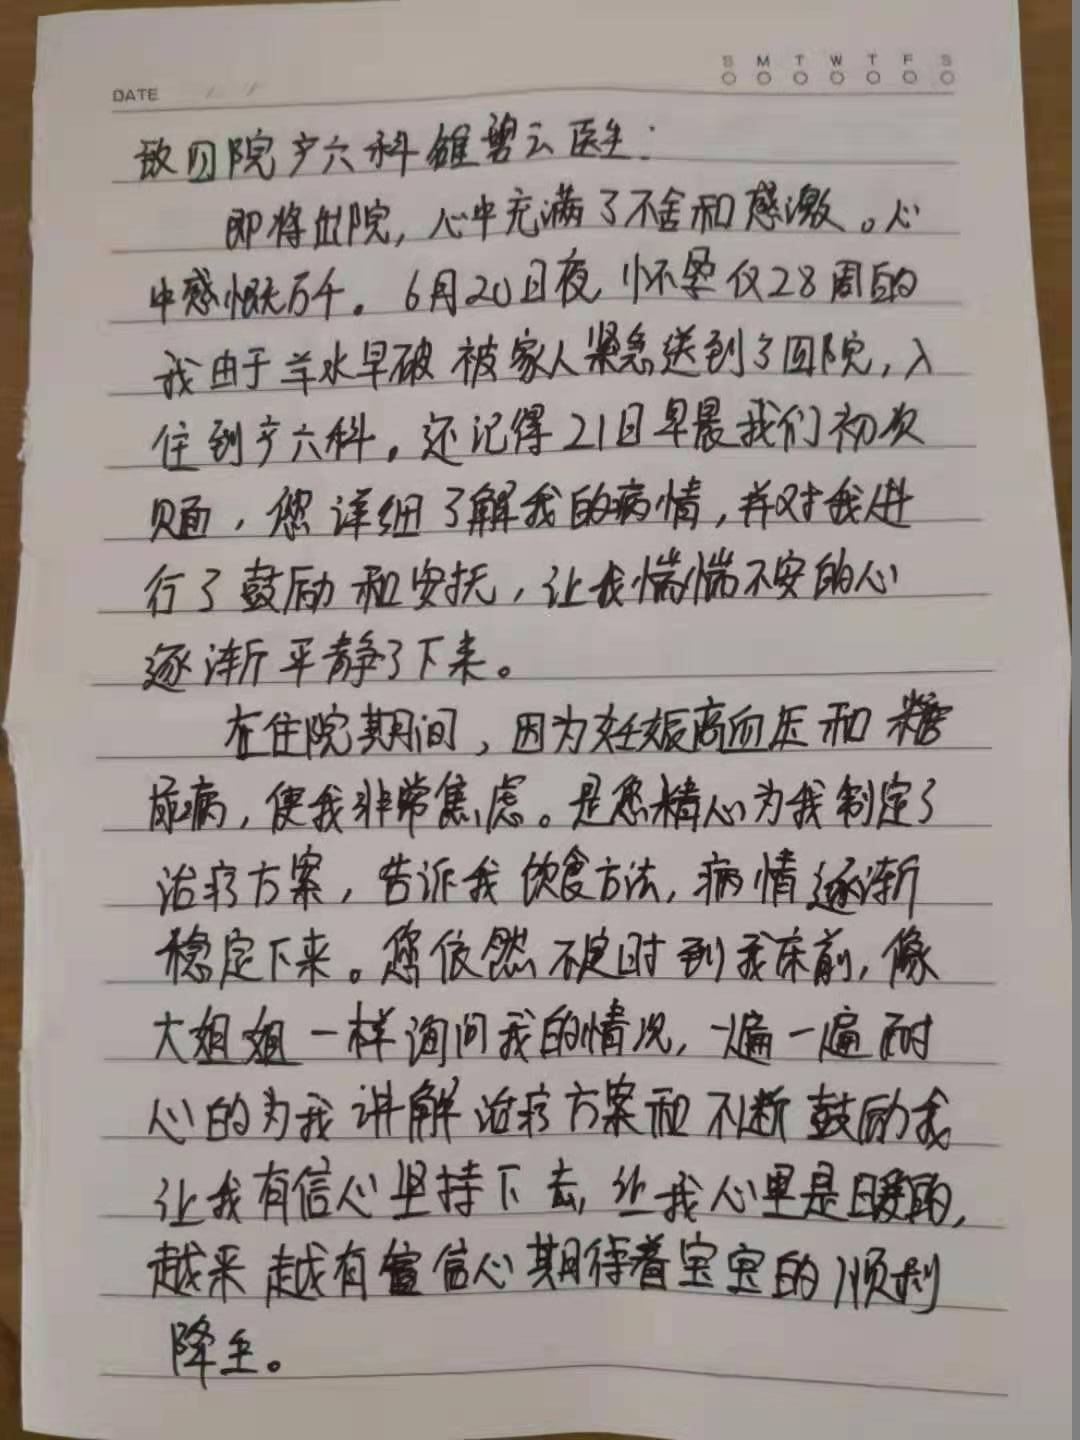 S M T W T F S
DATE / /
致四院产六科雒碧云医生：
即将出院，心中充满了不舍和感激。心
中感慨万千。6月20日夜，怀孕仅28周的
我由于羊水早破被家人紧急送到了四院，入
住到产六科。还记得21日早晨我们初次
见面，您详细了解我的病情，并对我进
行了鼓励和安抚，让我惴惴不安的心
逐渐平静了下来。
在住院期间，因为妊娠高血压和糖
尿病，使我非常焦虑。是您精心为我制定了
治疗方案，告诉我饮食方法，病情逐渐
稳定下来。您依然不定时到我床前，像
大姐姐一样询问我的情况，一遍一遍耐
心的为我讲解治疗方案和不断鼓励我
让我有信心坚持下去，让我心里是暖的，
越来越有信心期待着宝宝的顺利
降生。